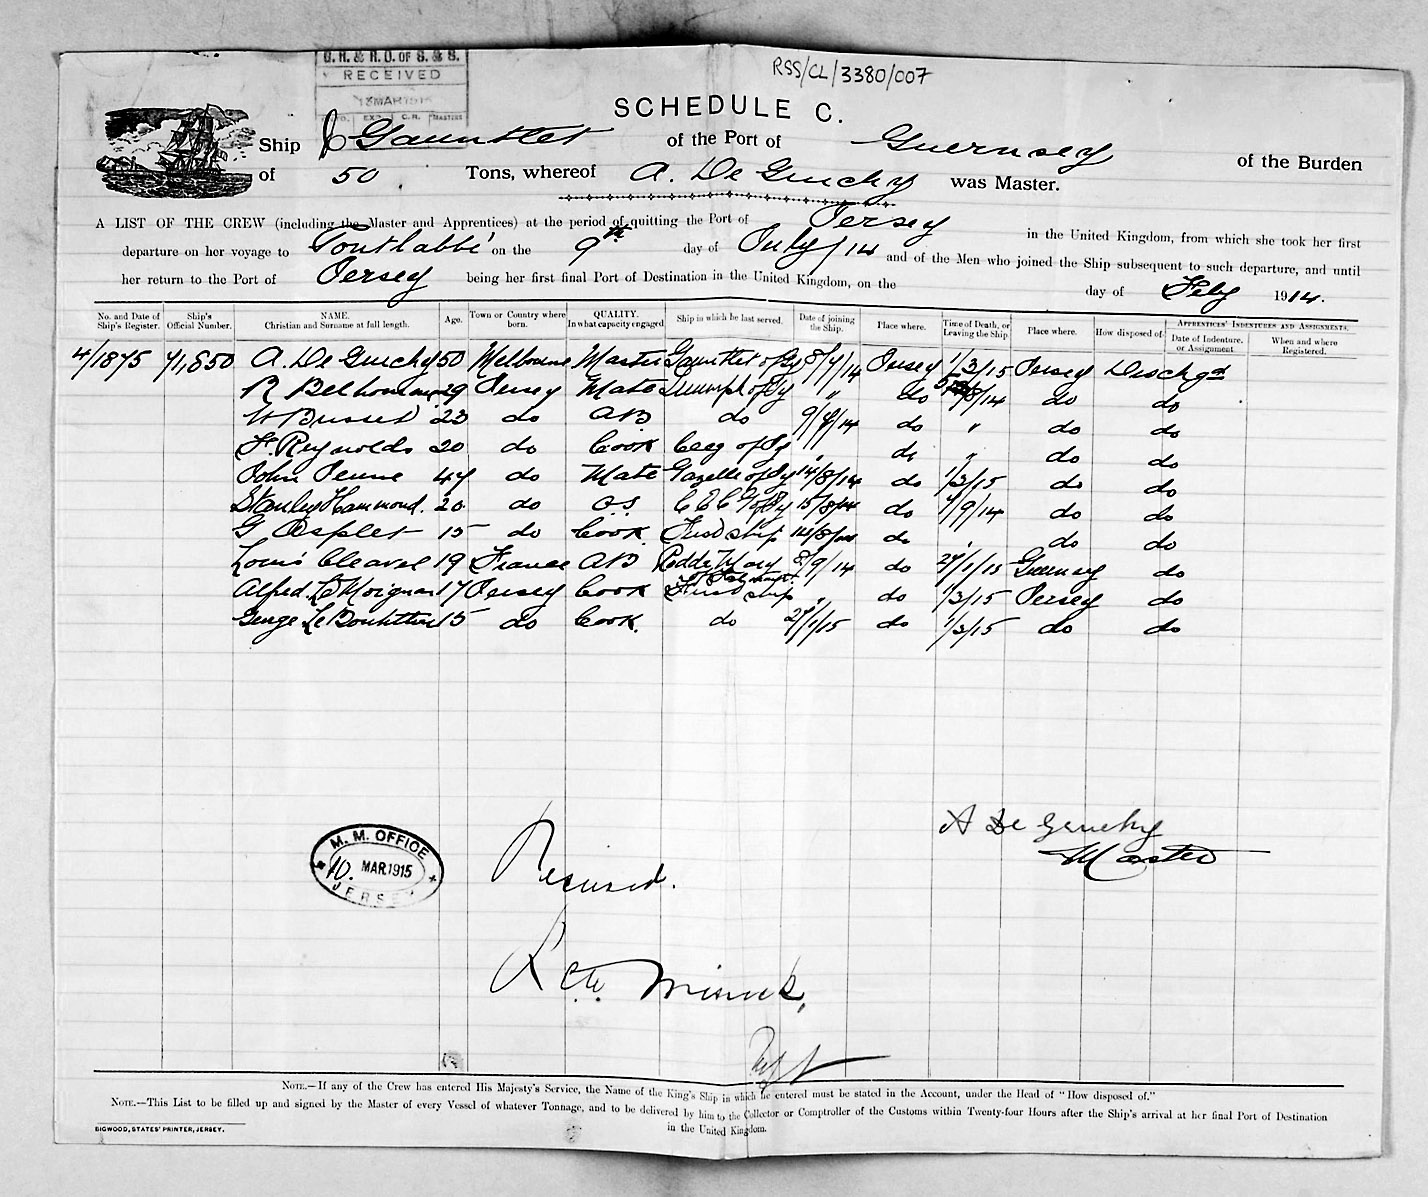 RSS/CL/3380/007
RECEIVED
13 MAR 1915
SCHEDULE C.
Ship Gauntlet of the Port of Guernsey of the Burden
of 50 Tons, whereof A. De Gruchy was Master.
A LIST OF THE CREW (including the Master and Apprentices) at the period of quitting the Port of Jersey in the United Kingdom, from which she took her first
departure on her voyage to Pontlabbé on the 9th day of July/14 and of the Men who joined the Ship subsequent to such departure, and until
her return to the Port of Jersey being her first final Port of Destination in the United Kingdom, on the day of Feby 1914.
No. and Date of Ship's Register. Ship's Official Number. NAME. Christian and Surname at full length. Age. Town or Country where born. QUALITY. In what capacity engaged Ship in which he last served. Date of joining the Ship. Place where. Time of Death, or Leaving the Ship Place where. How disposed of. APPRENTICES' INDENTURES AND ASSIGNMENTS. Date of Indenture, or Assignment When and where Registered.
4/1875 71,850 A. De Gruchy 50 Melbourne Master Gauntlet of Gy 8/7/14 Jersey 1/3/15 Jersey Dischgd
R 29 Jersey Mate Triumph of Jy " do /8/14 do do
23 do AB do 9/7/14 do " do do
F. Reynolds 20 do Cook of Jy " do " do do
John Penne 47 do Mate Gazelle of Jy 14/8/14 do 1/3/15 do do
Stanley Hammond. 20 do O.S. 15/8/14 do /9/14 do do
G Asplet 15 do Cook Friendship 14/8/14 do " do do
Louis Cleaval 19 France AB Mary 8/9/14 do 27/1/15 Guernsey do
Alfred. Le Moignan 17 Jersey Cook Friendship " do 1/3/15 Jersey do
George Le 15 do Cook. do 27/1/15 do 1/3/15 do do
A De Gruchy
Master
M. M. OFFICE
10. MAR 1915
JERSEY
Received.
NOTE.—If any of the Crew has entered His Majesty's Service, the Name of the King's Ship in which he entered must be stated in the Account, under the Head of "How disposed of."
NOTE.—This List to be filled up and signed by the Master of every Vessel of whatever Tonnage, and to be delivered by him to the Collector or Comptroller of the Customs within Twenty-four Hours after the Ship's arrival at her final Port of Destination
in the United Kingdom.
BIGWOOD, STATES' PRINTER, JERSEY.